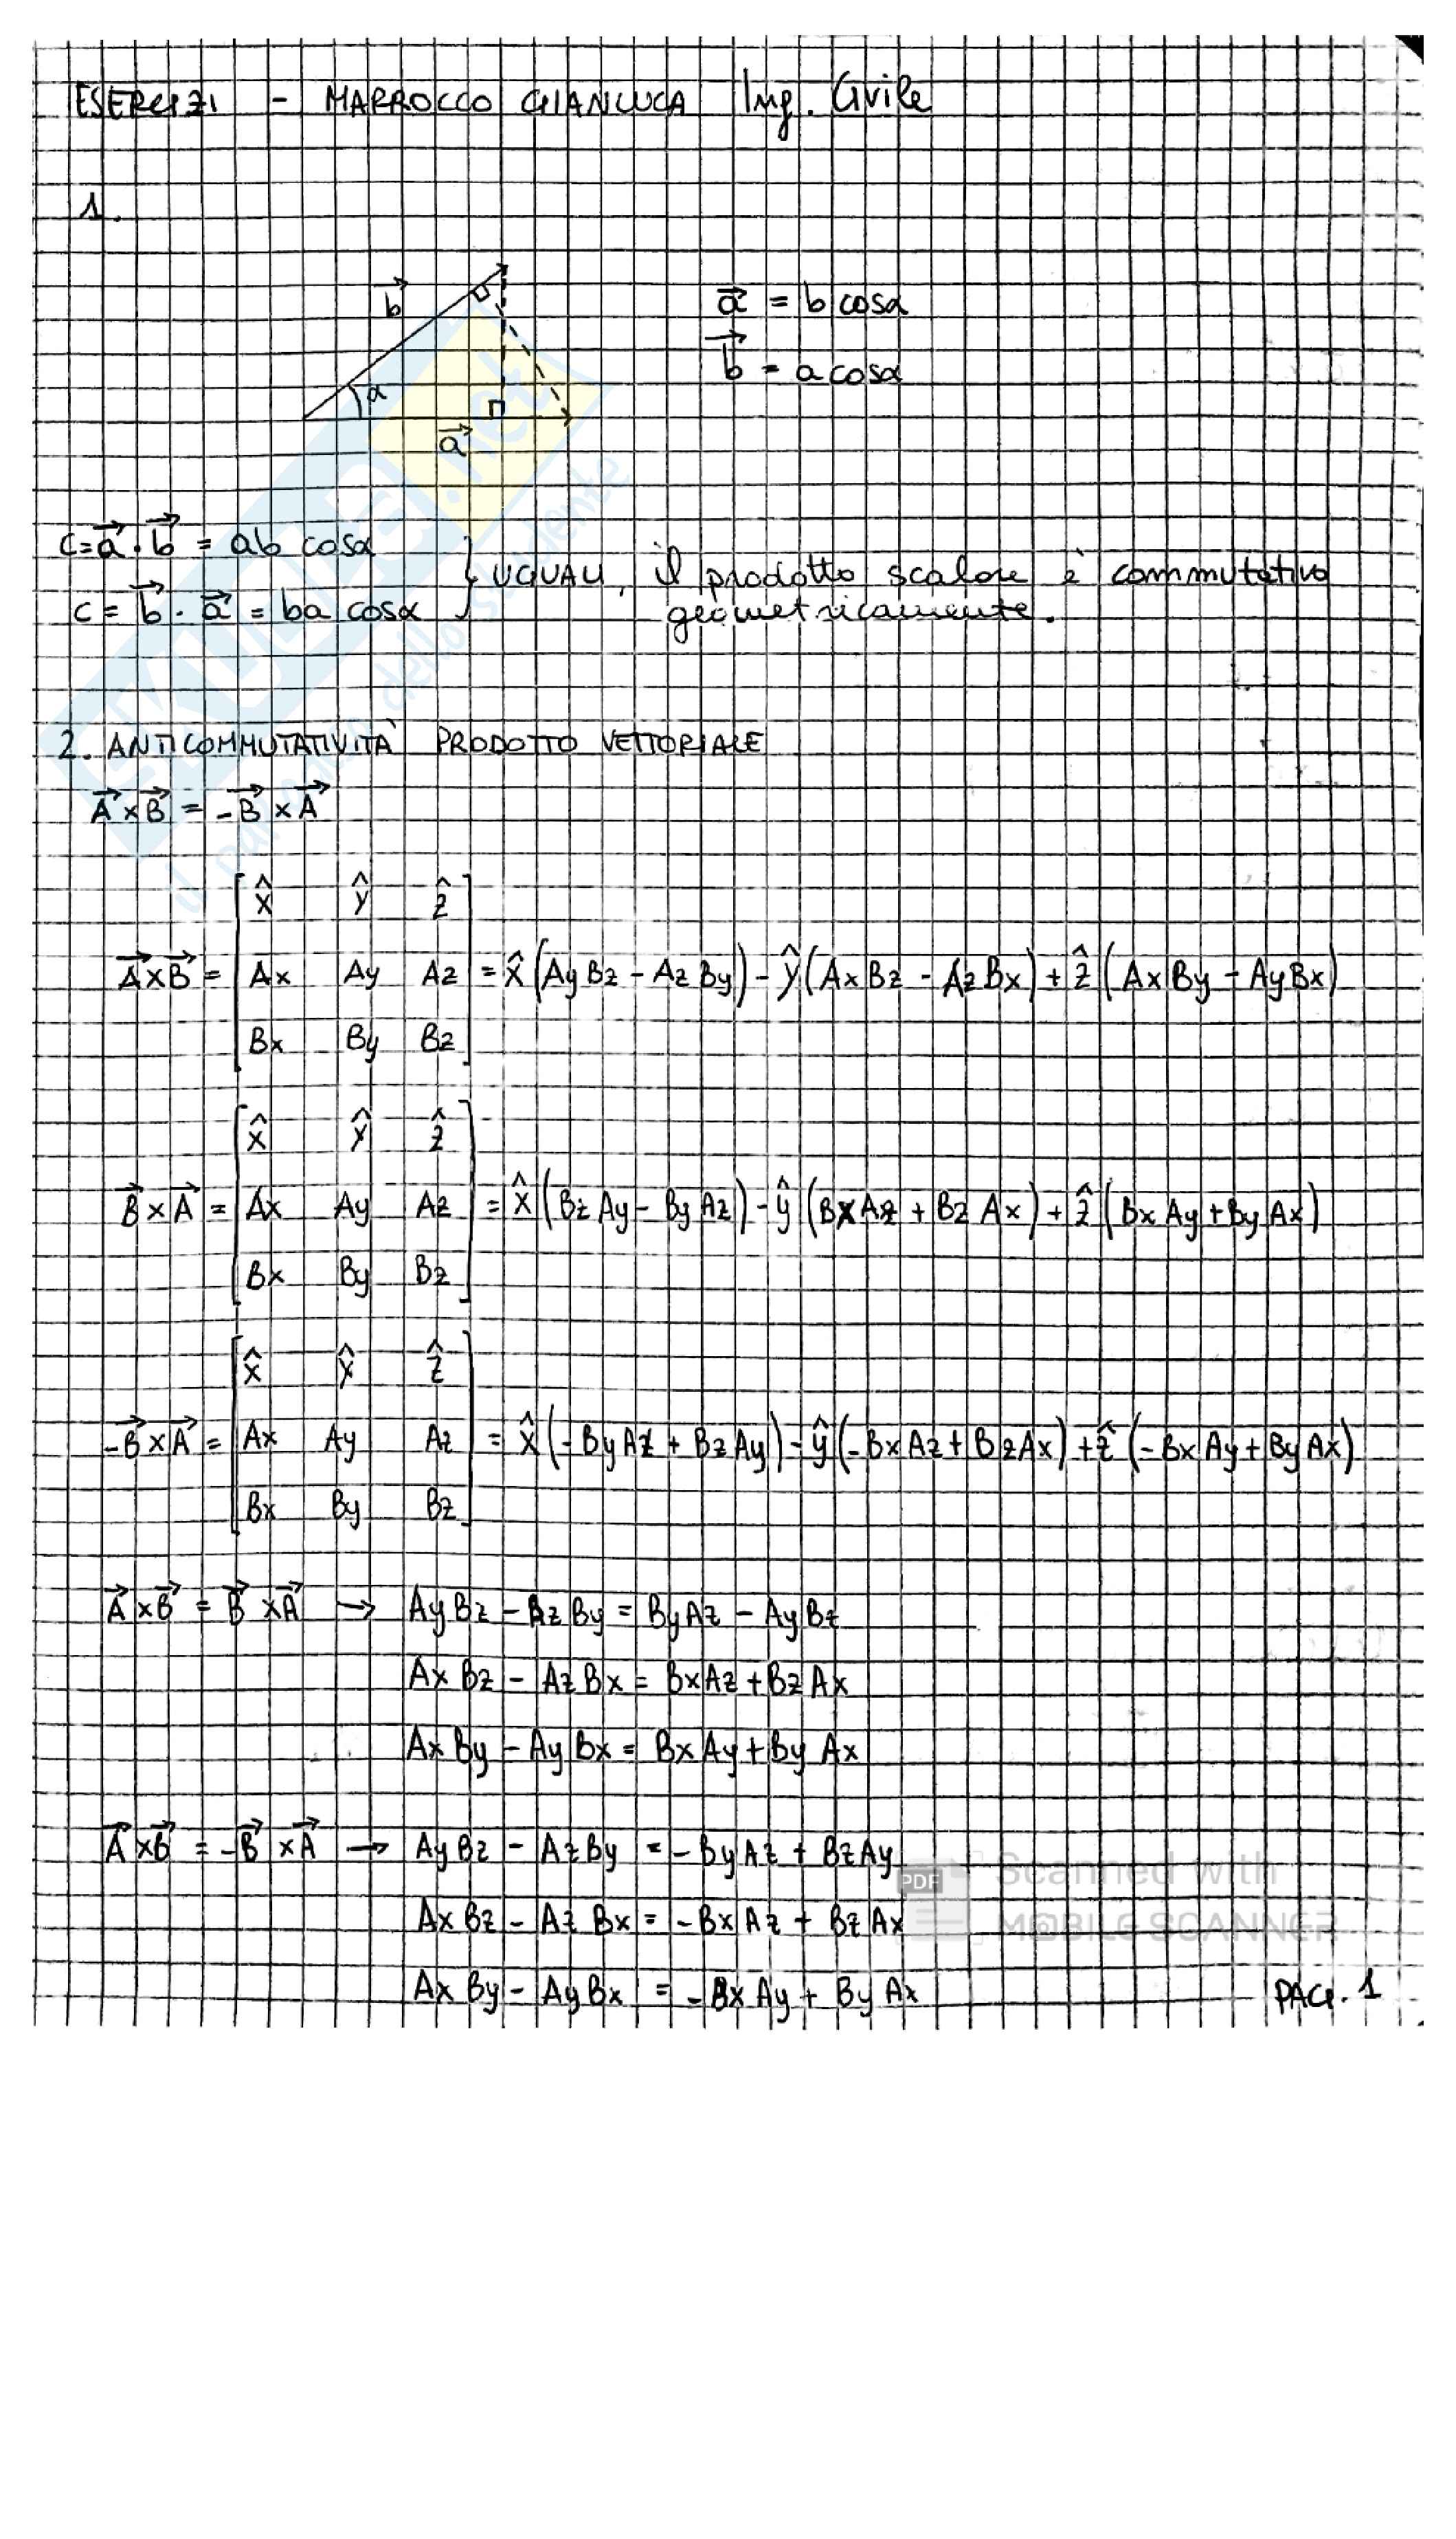 ESERCIZI - MARROCCO GIANLUCA Ing. Civile
1.
b⃗
α
a⃗
a⃗ = b cosα
b⃗ = a cosα
C = a⃗ · b⃗ = ab cosα
c = b⃗ · a⃗ = ba cosα
} UGUALI, il prodotto scalare è commutativo
geometricamente.
2. ANTICOMMUTATIVITÀ PRODOTTO VETTORIALE
A⃗ x B⃗ = -B⃗ x A⃗
x̂ ŷ ẑ
A⃗xB⃗ = Ax Ay Az = x̂ (AyBz - AzBy) - ŷ (AxBz - AzBx) + ẑ (AxBy - AyBx)
Bx By Bz
x̂ ŷ ẑ
B⃗xA⃗ = Ax Ay Az = x̂ (BzAy - ByAz) - ŷ (BxAz + BzAx) + ẑ (BxAy + ByAx)
Bx By Bz
x̂ ŷ ẑ
-B⃗xA⃗ = Ax Ay Az = x̂ (-ByAz + BzAy) - ŷ (-BxAz + BzAx) + ẑ (-BxAy + ByAx)
Bx By Bz
A⃗xB⃗ = B⃗xA⃗ → AyBz - AzBy = ByAz - AyBz
AxBz - AzBx = BxAz + BzAx
AxBy - AyBx = BxAy + ByAx
A⃗xB⃗ = -B⃗xA⃗ → AyBz - AzBy = -ByAz + BzAy
AxBz - AzBx = -BxAz + BzAx
AxBy - AyBx = -BxAy + ByAx
PAG. 1
PDF
Scanned with
MOBILE SCANNER
SKUOLA.net
il paradiso dello studente